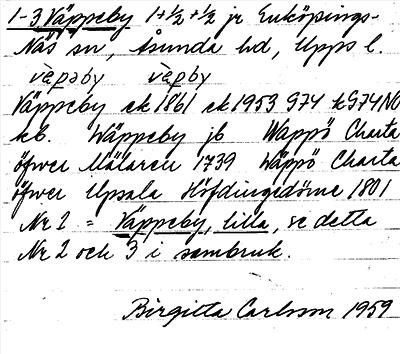 1-3 Väppeby 1+½+½ jr Enköpings-
Näs sn, Åsunda hd, Upps l.
vä̀pəby vä̀pby
Väppeby ek 1861 ek 1953 G74 tG74NO
kb. Wäppeby jb Wappö Charta
öfwer Mälaren 1739 Wäppö Charta
öfwer Upsala Höfdingedöme 1801
Nr 1 = Väppeby, lilla, se detta
Nr 2 och 3 i sambruk.
Birgitta Carlsson 1959